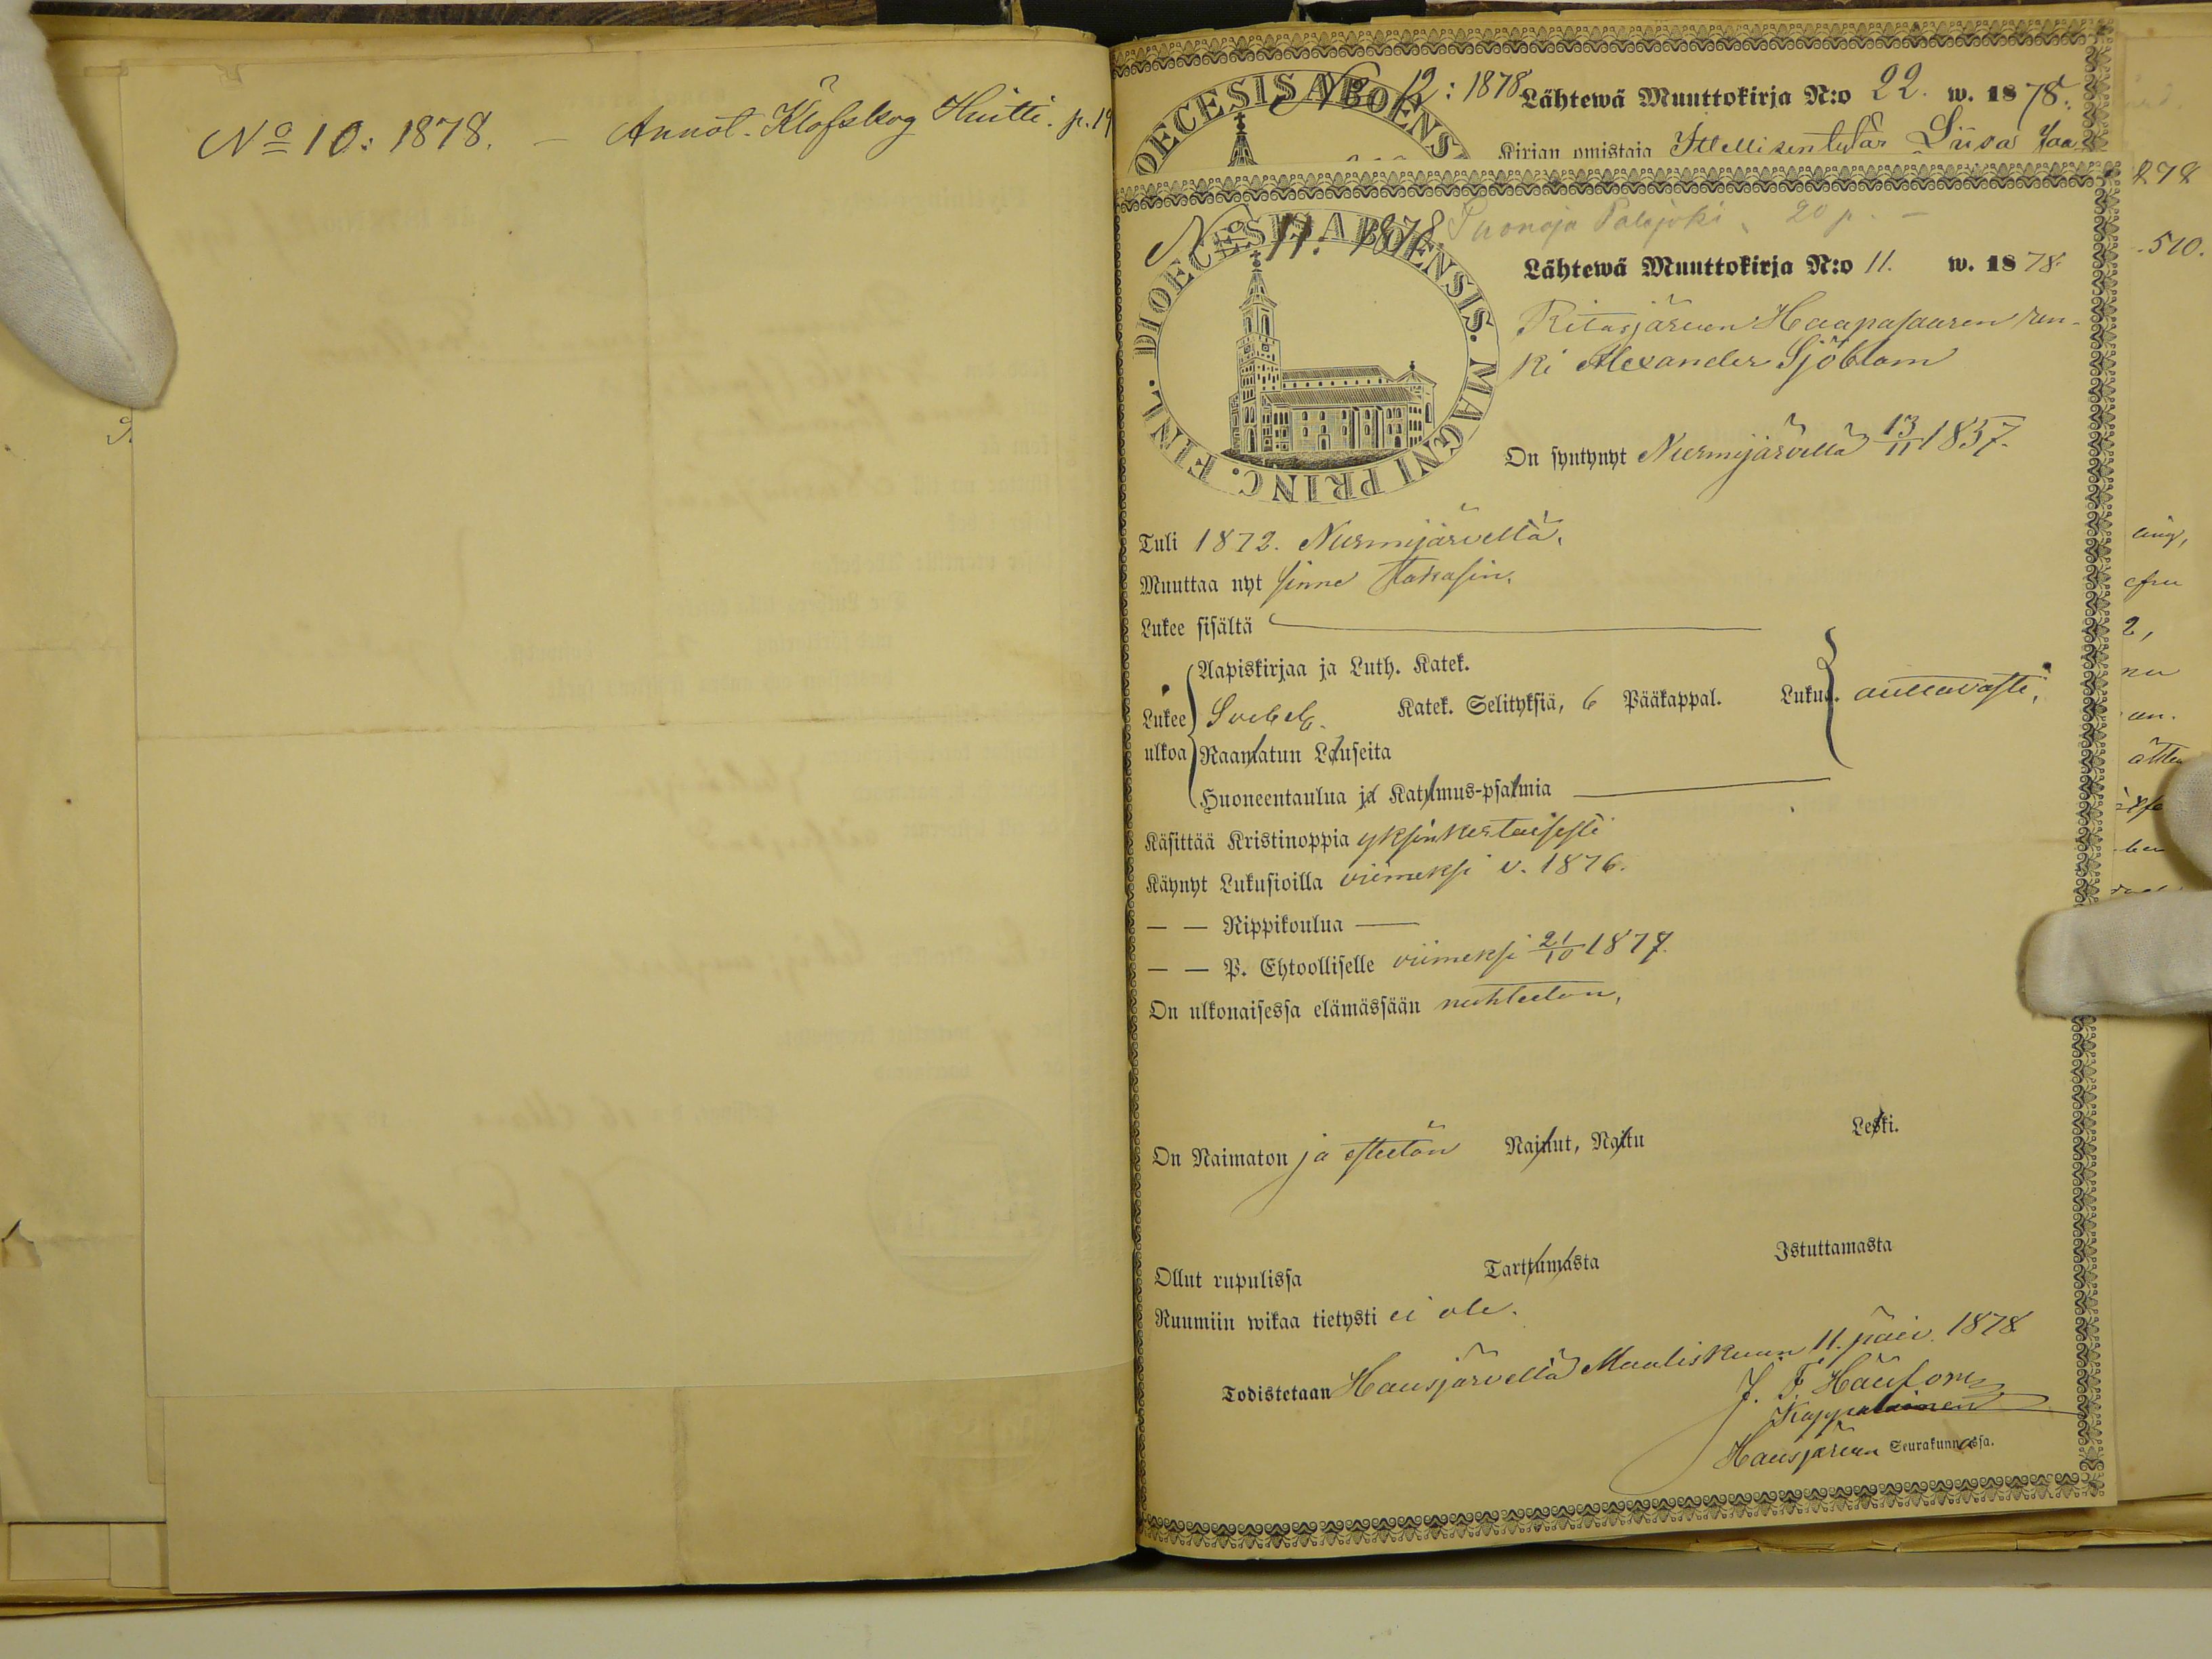 No 10: 1878. — Annot. Klöfskog Huitti. p. 19
DIOECESIS ABOENSIS
No 12: 1878
Lähtewä Muuttokirja N:o 22. w. 1878.
Kirjan omistaja Itellisentytär Liisa Jaa-
278
No 11: 1878.
Palojoki 20 p. —
DIOECESIS ABOENSIS. MAGNI PRINC. FINL.
Lähtewä Muuttokirja N:o 11. w. 1878.
510.
Ritasjärven Haapasaaren ren-
ki Alexander Sjöblom
On syntynyt Nurmijärvellä 13/11 1837.
Tuli 1872. Nurmijärveltä.
Muuttaa nyt sinne takasin.
Lukee sisältä
Aapiskirjaa ja Luth. Katek.
Lukee ulkoa
Svebel. Katek. Selityksiä, 6 Pääkappal. Lukua. auttavasti.
Raamatun Lauseita
Huoneentaulua ja Katumus-psalmia
Käsittää Kristinoppia yksinkertaisesti
Käynyt Lukusioilla viimeksi v. 1876.
— — Rippikoulua —
— — P. Ehtoolliselle viimeksi 21/10 1877.
On ulkonaisessa elämässään nuhteeton.
On Naimaton ja esteetön Nainut, Naitu Leski.
Ollut rupulissa Tarttumasta Istuttamasta
Ruumiin wikaa tietysti ei ole.
Todistetaan Hausjärvellä Maaliskuun 11. päiv. 1878
J. F.
Kappalainen
Hausjärven Seurakunnassa.